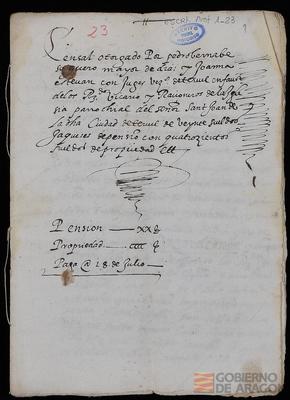 ESCRI. Not 1-23
23
Censal otorgado Por pedro bernabe
mayor de dias y Joanna
estevan con Juges Vezos de teruel en favor
de los Rdos Vicario y Racioneros de la Igle
sia parrochial del señor Sant Joan de
la dha Ciudad de teruel de veynte sueldos
Jaqueses de pension con quatrozientos
sueldos de propiedad Ett
Pension — xx ș
Propiedad — cccc ș
Paga @ 18 de Julio
GOBIERNO
DE ARAGON